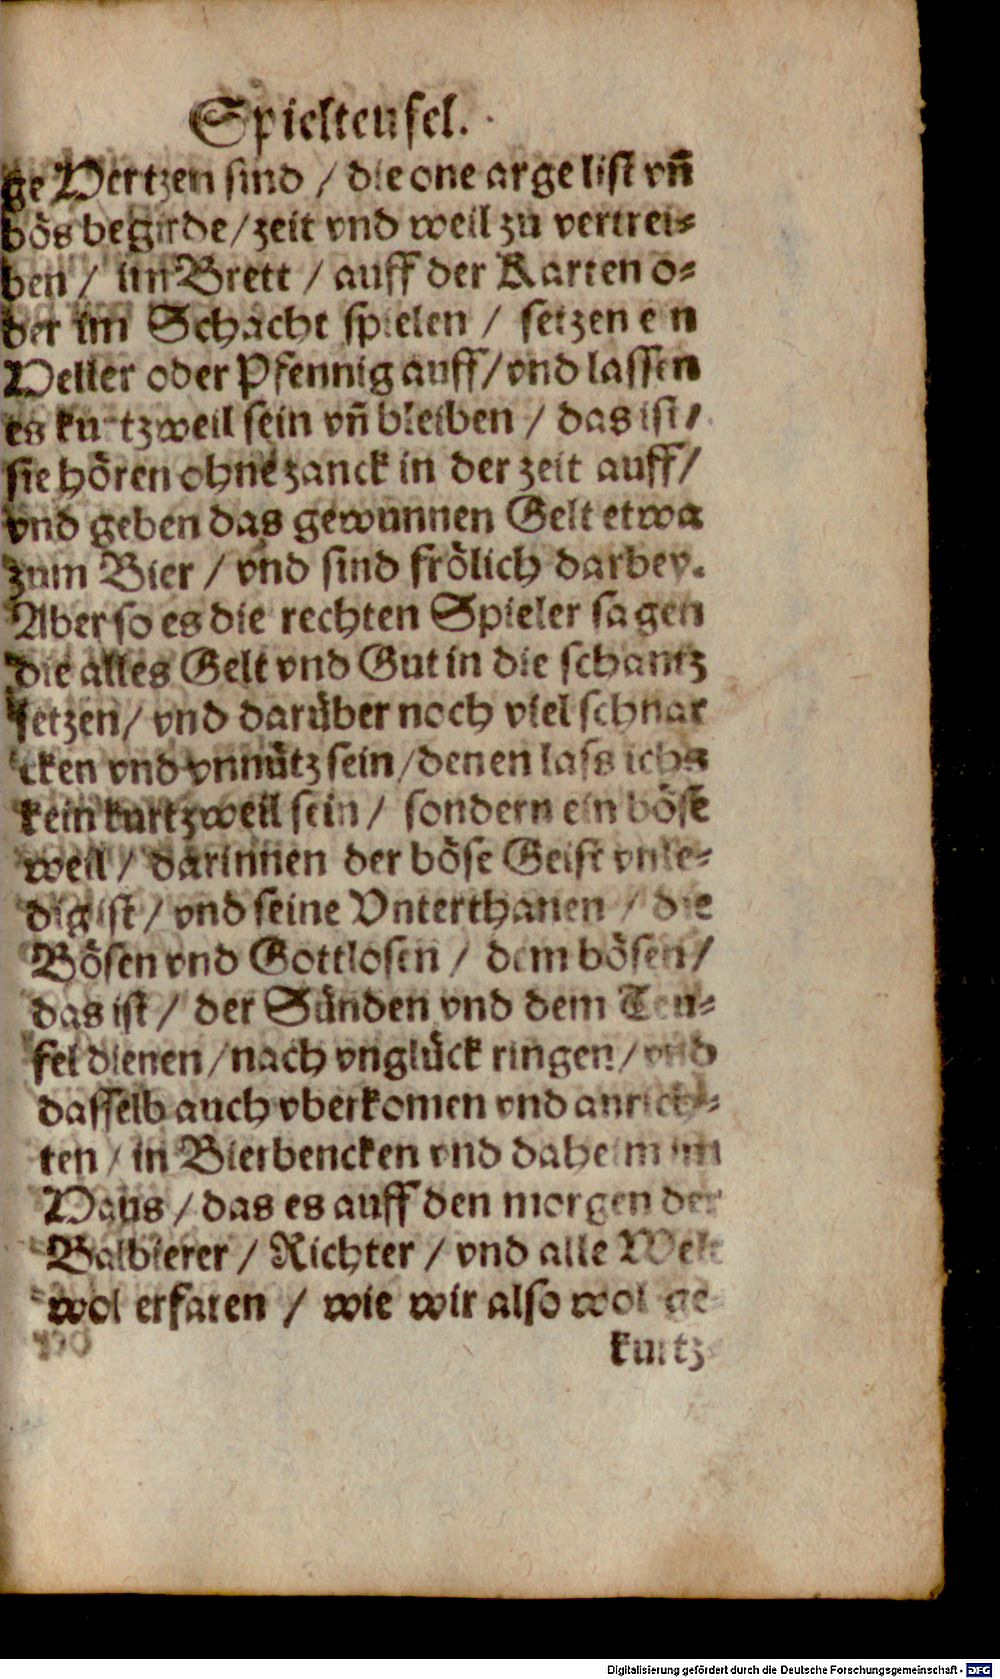 Spielteufel.
ge Hertzen sind / die one arge list vñ
bös begirde / zeit vnd weil zu vertrei⸗
ben / im Brett / auff der Karten o⸗
der im Schacht spielen / setzen ein
Heller oder Pfennig auff / vnd lassen
es kurtzweil sein vñ bleiben / das ist /
sie hören ohne zanck in der zeit auff /
vnd geben das gewunnen Gelt etwa
zum Bier / vnd sind frölich darbey.
Aber so es die rechten Spieler sagen
die alles Gelt vnd Gut in die schantz
setzen / vnd darüber noch viel schnar
cken vnd vnnütz sein / denen lass ichs
kein kurtzweil sein / sondern ein böse
weil / darinnen der böse Geist vnle⸗
dig ist / vnd seine Vnterthanen / die
Bösen vnd Gottlosen / dem bösen /
das ist / der Sünden vnd dem Teu⸗
fel dienen / nach vnglück ringen / vnd
dasselb auch vberkomen vnd anrich⸗
ten / in Bierbencken vnd daheim im
Haus / das es auff den morgen der
Balbierer / Richter / vnd alle Welt
wol erfaren / wie wir also wol ge⸗
kurtz⸗
Digitalisierung gefördert durch die Deutsche Forschungsgemeinschaft - DFG